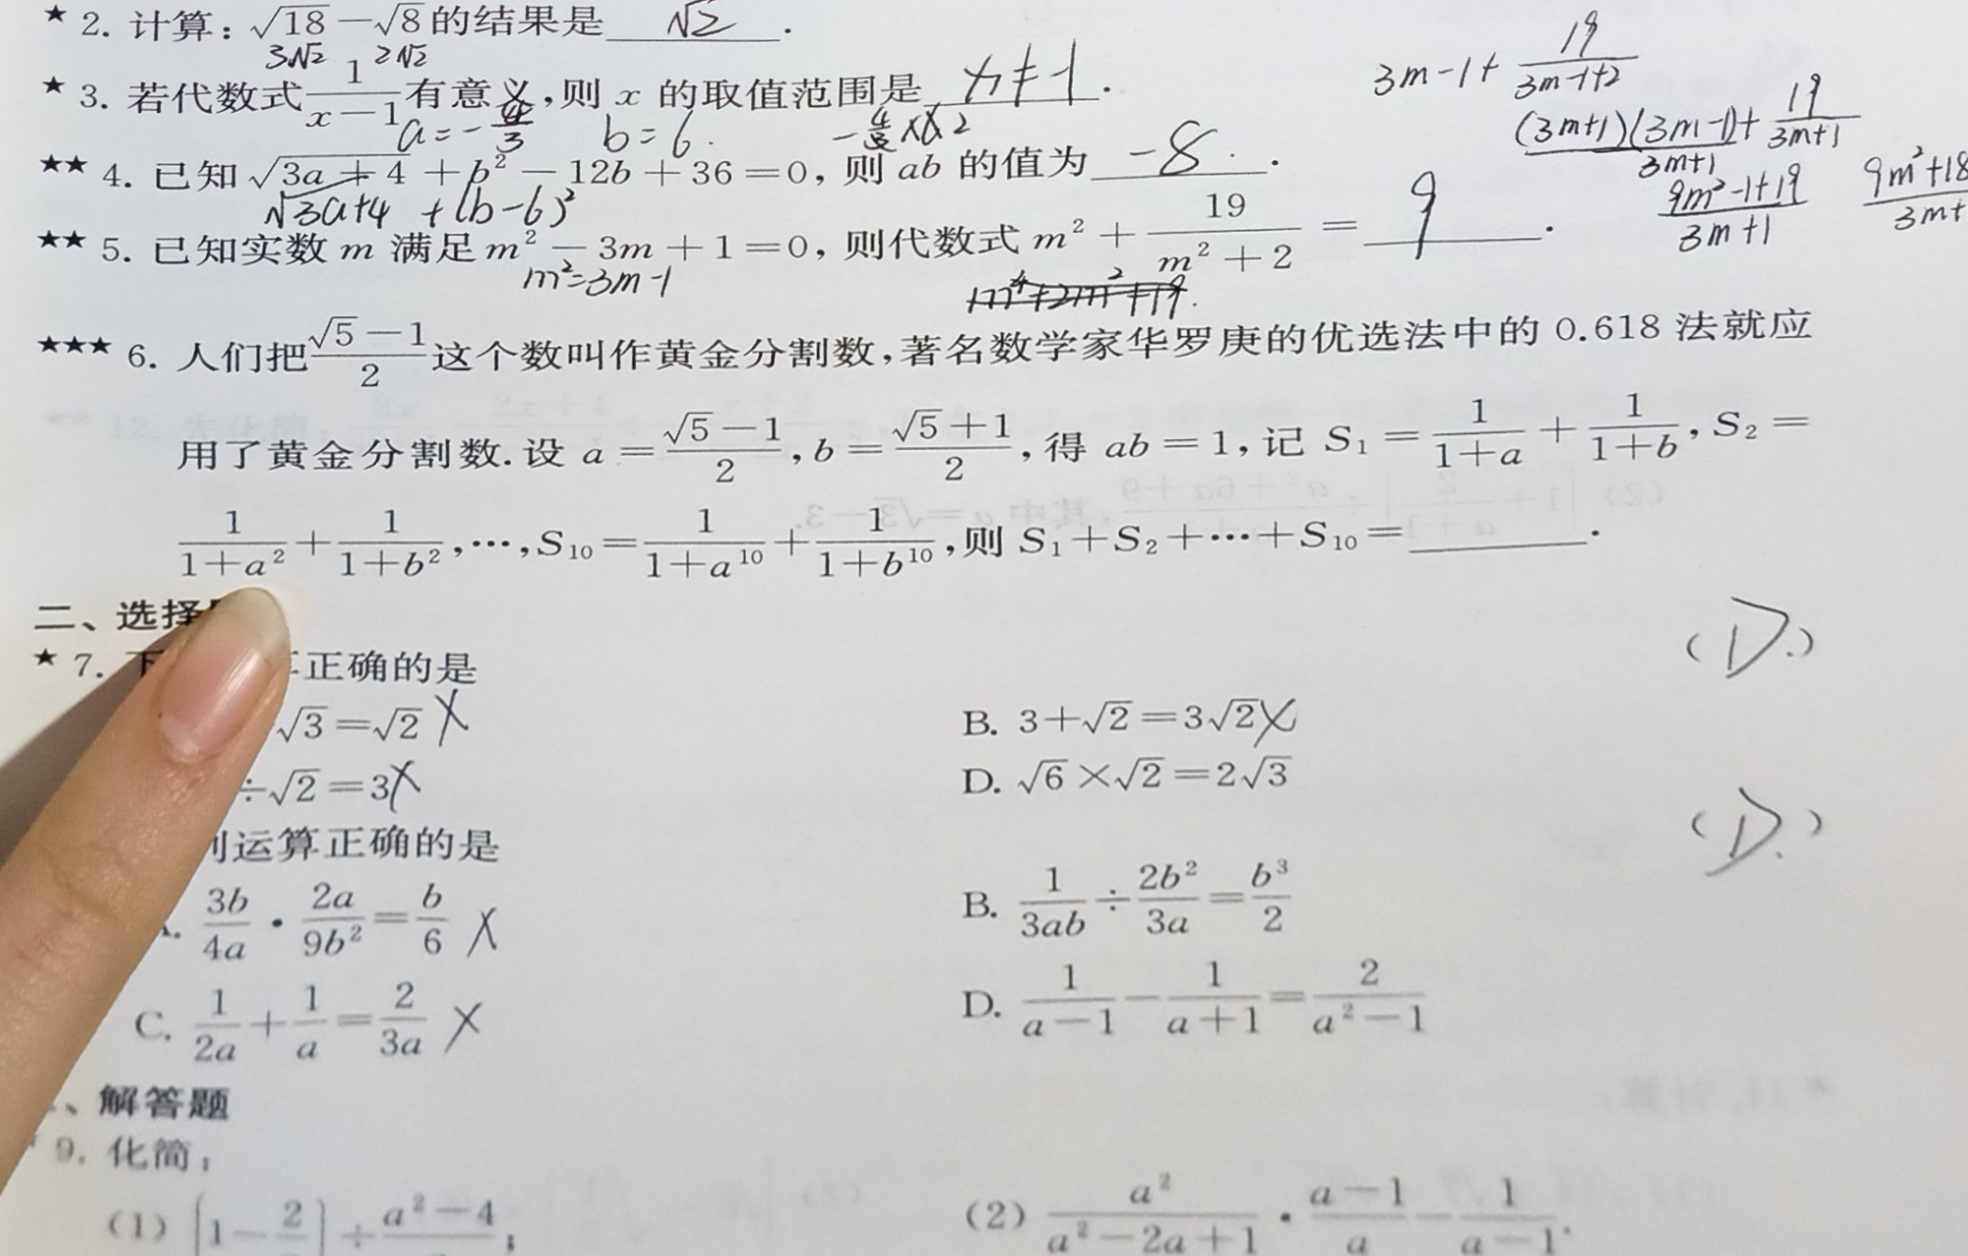 ★ 2. 计算：√18－√8的结果是 √2 .
3√2 2√2
★ 3. 若代数式1/(x－1)有意义,则 x 的取值范围是 x≠1 .
a=-4/3 b=6. -4/3×6 2
★★ 4. 已知 √(3a＋4)＋b²－12b＋36＝0, 则 ab 的值为 -8 .
√3a+4 +(b-6)²
★★ 5. 已知实数 m 满足 m²－3m＋1＝0, 则代数式 m²＋19/(m²＋2)＝ 9 .
m²=3m-1
m⁴+2m²+19.
3m-1+19/(3m-1+2)
(3m+1)(3m-1)/(3m+1)+19/(3m+1)
(9m²-1+19)/(3m+1) (9m²+18)/3m+
★★★ 6. 人们把(√5－1)/2这个数叫作黄金分割数,著名数学家华罗庚的优选法中的 0.618 法就应
用了黄金分割数.设 a＝(√5－1)/2,b＝(√5＋1)/2,得 ab＝1,记 S₁＝1/(1＋a)＋1/(1＋b),S₂＝
1/(1＋a²)＋1/(1＋b²),…,S₁₀＝1/(1＋a¹⁰)＋1/(1＋b¹⁰),则 S₁＋S₂＋…＋S₁₀＝ .
二、选择
★ 7. 下 正确的是 (D.)
√3＝√2 ×
B. 3＋√2＝3√2 ×
÷√2＝3 ×
D. √6×√2＝2√3
列运算正确的是 (D.)
3b/4a·2a/9b²＝b/6 ×
B. 1/3ab÷2b²/3a＝b³/2
C. 1/2a＋1/a＝2/3a ×
D. 1/(a－1)－1/(a＋1)＝2/(a²－1)
、解答题
9. 化简：
(1) [1－2/ ]÷(a²－4)/ ;
(2) a²/(a²－2a＋1)·(a－1)/a－1/(a－1).